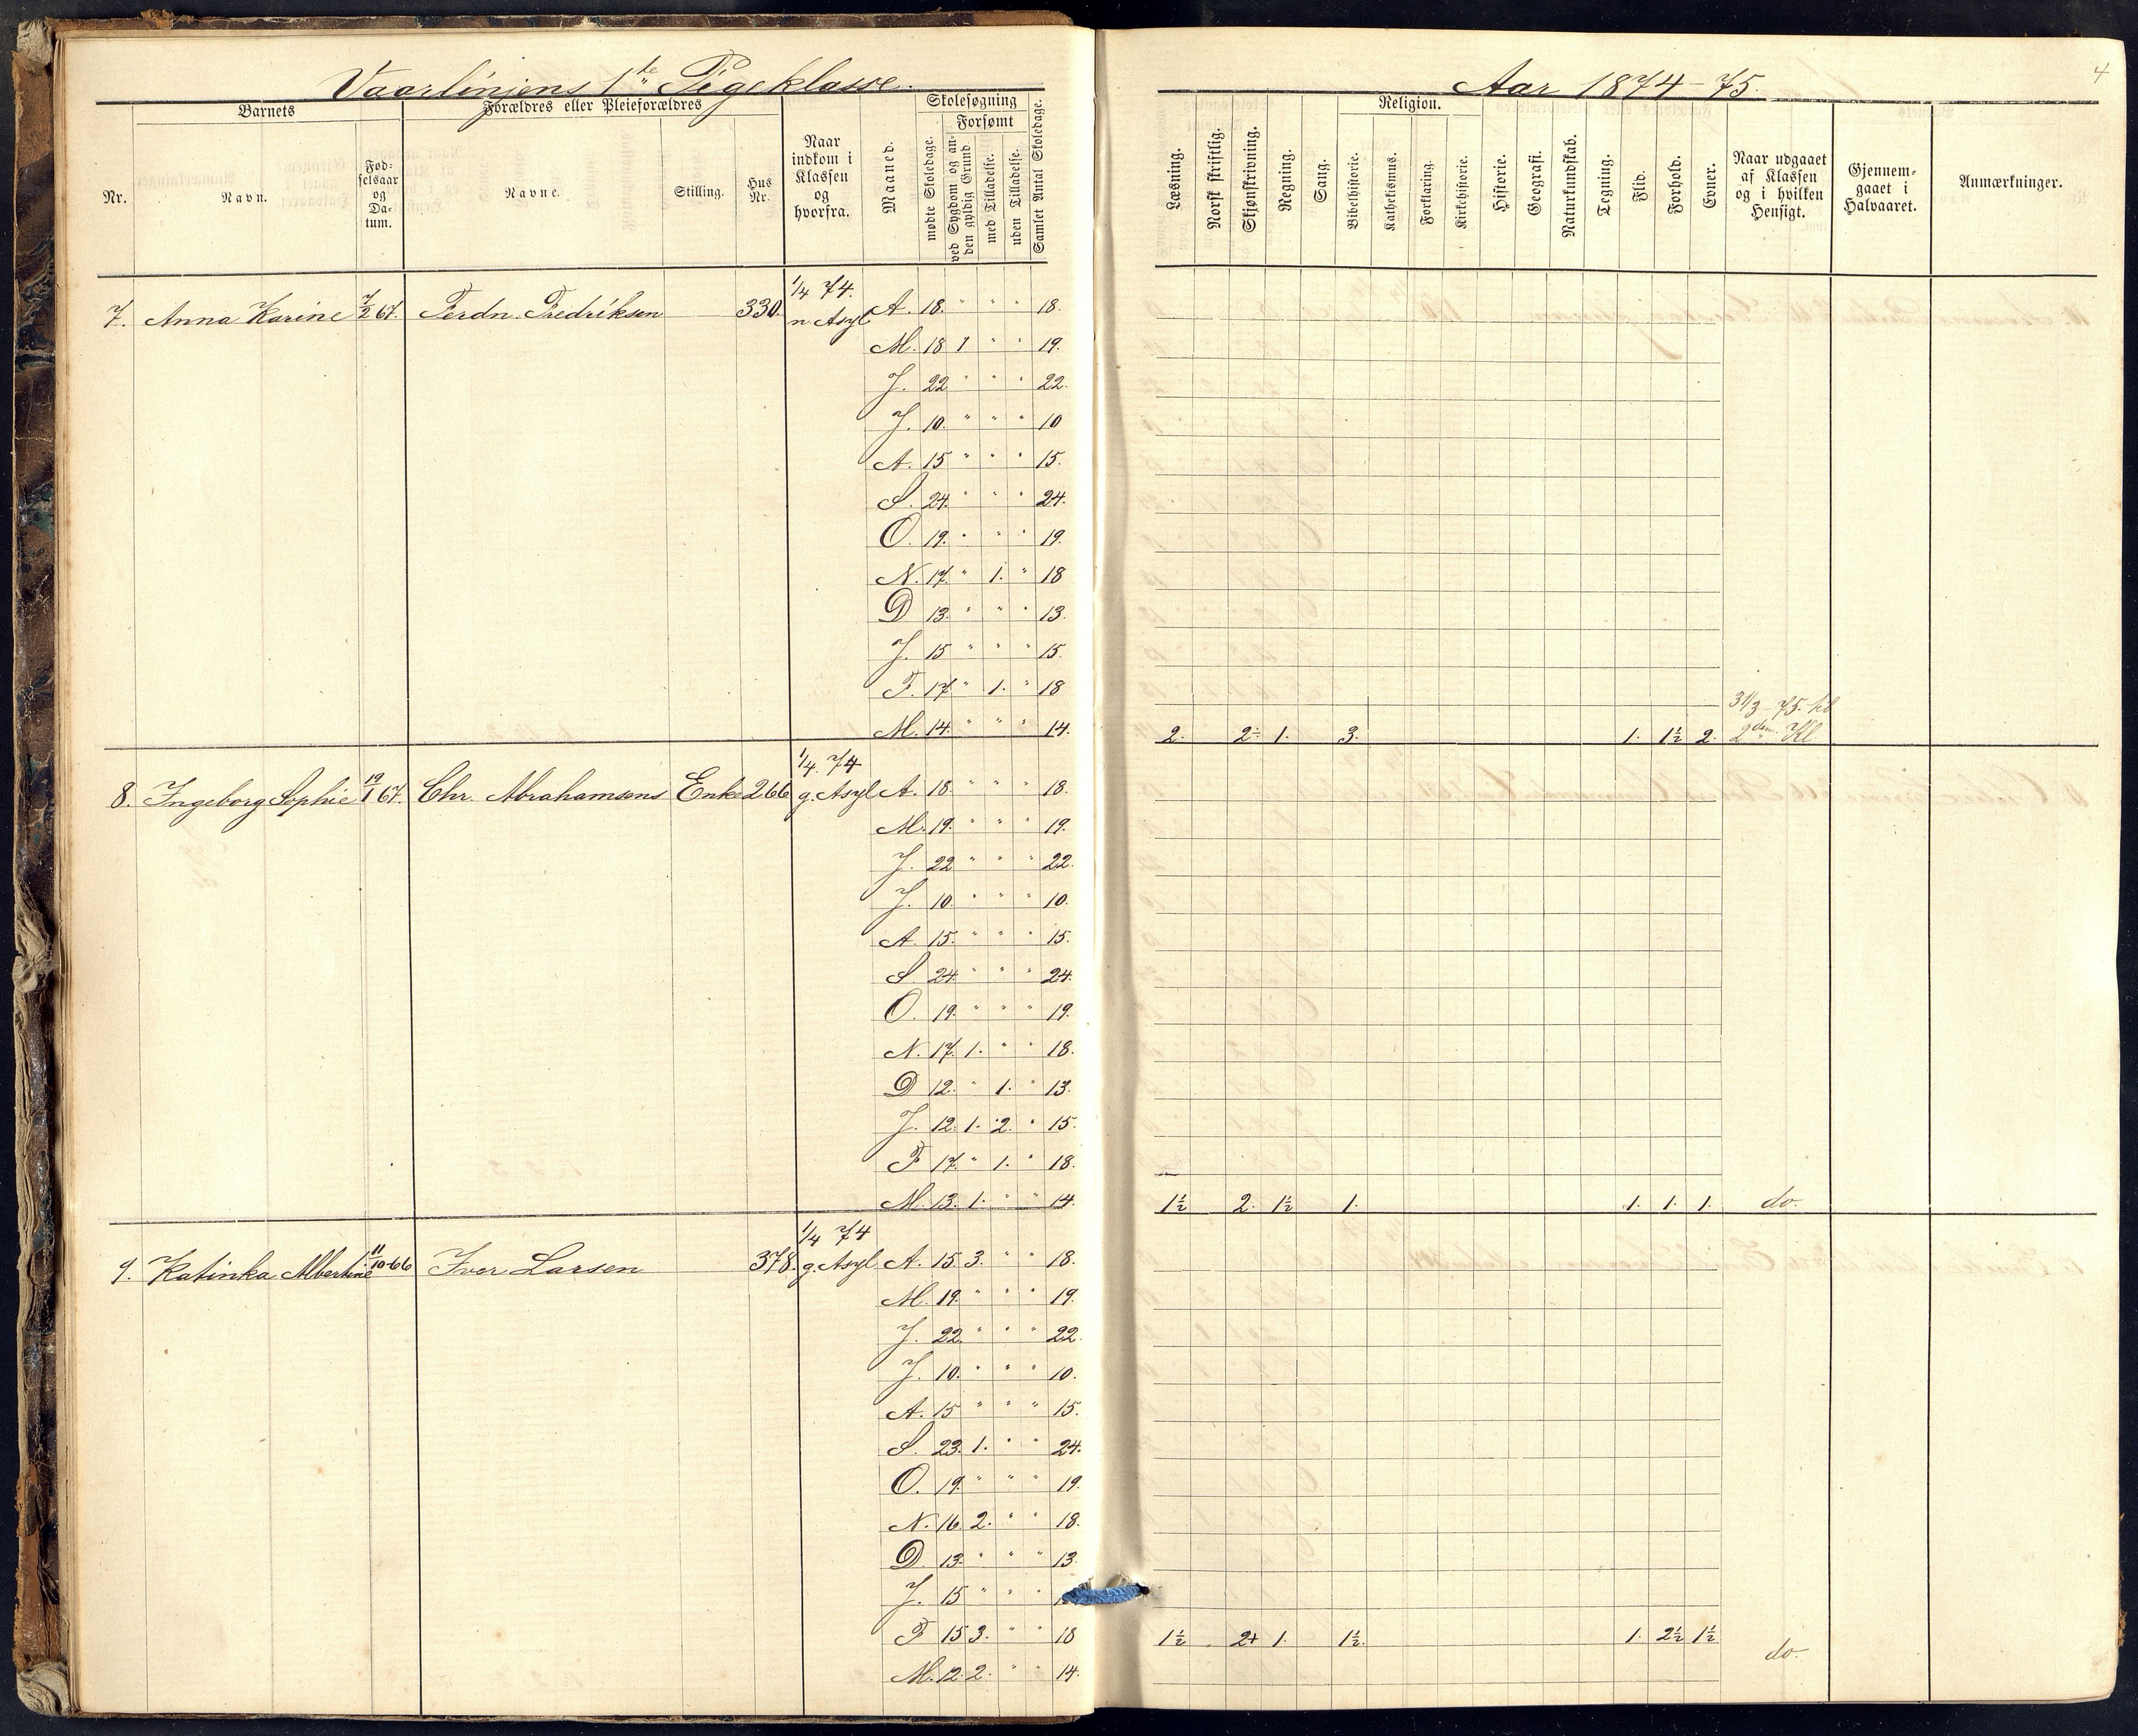 Vaarlinjens 1ste Pigeklasse.
Aar 1874-75.
4
Barnets
Forældres eller Pleieforældres
Skolesøgning
Forsømt
Nr.
Navn.
Fød-
selsaar
og
Da-
tum.
Navne.
Stilling.
Hus
Nr.
Naar
indkom i
Klassen
og
hvorfra.
Maaned.
mødte Skoledage.
ved Sygdom og an-
den gyldig Grund.
med Tilladelse.
uden Tilladelse.
Samlet Antal Skoledage.
Læsning.
Norsk skriftlig.
Skjønskrivning.
Regning.
Sang.
Religion.
Bibelhistorie.
Kathekismus.
Forklaring.
Kirkehistorie.
Historie.
Geografi.
Naturkundskab.
Tegning.
Flid.
Forhold.
Evner.
Naar udgaaet
af Klassen
og i hvilken
Hensigt.
Gjennem-
gaaet i
Halvaaret.
Anmærkninger.
1/4 74.
7. Anna Karine 7/2 67. Ferdn. Fredriksen 330. n Asyl A. 18. " " " 18.
M. 18 1 " " 19.
J. 22 " " " 22.
J. 10. " " " 10
A. 15 " " " 15.
S. 24. " " " 24.
O. 19. " " " 19.
N. 17. " 1. " 18
D 13. " " " 13.
J. 15 " " " 15.
F. 17 " 1. " 18
31/3-75. til
M. 14. " " " 14. 2. 2÷ 1. 3. 1. 1½ 2. 2den Kl
1/4. 74
8. Ingeborg Sophie 19/1 67. Chr. Abrahamsens Enke 266 g. Asyl A. 18. " " " 18.
M. 19. " " " 19.
J. 22 " " " 22.
J. 10. " " " 10.
A. 15. " " " 15.
S. 24. " " " 24.
O. 19. " " " 19.
N. 17. 1. " " 18.
D 12. " 1. " 13.
J. 12. 1. 2. " 15.
F 17. " 1. " 18.
M. 13. 1. " " 14. 1½ 2. 1½ 1. 1. 1. 1. do.
1/4 74
9. Katinka Albertine 11/10-66 Iver Larsen 378. g. Asyl A. 15. 3. " " 18.
M. 19. " " " 19.
J. 22. " " " 22.
J. 10. " " " 10.
A. 15 " " " 15.
S. 23. 1. " " 24.
O. 19. " " " 19.
N. 16. 2. " " 18.
D. 13. " " " 13.
J. 15 " " "
F 15 3. " " 18 1½ 2+ 1. 1½. 1. 2½ 1½
M. 12. 2. " " 14. do.